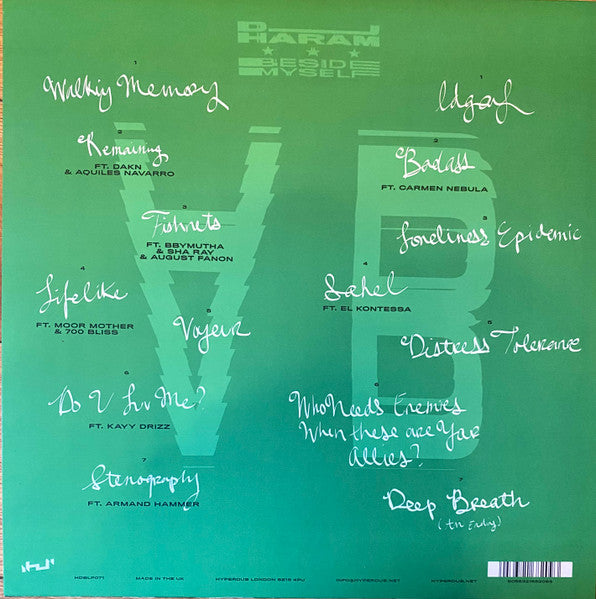 DJ HARAM
BESIDE
MYSELF
1
Walking Memory
2
Remaining
FT. DAKN
& AQUILES NAVARRO
3
Fishnets
FT. BBYMUTHA
& SHA RAY
& AUGUST FANON
4
Lifelike
FT. MOOR MOTHER
& 700 BLISS
5
Voyeur
6
Do U Luv Me?
FT. KAYY DRIZZ
7
Stenography
FT. ARMAND HAMMER
A
1
Idgaf
2
Badass
FT. CARMEN NEBULA
3
Loneliness Epidemic
4
Sahel
FT. EL KONTESSA
5
Distress Tolerance
6
Who Needs Enemies
When these are Your
Allies?
7
Deep Breath
(An Ending)
B
HDBLP071
MADE IN THE UK
HYPERDUB LONDON SE15 4PU
INFO@HYPERDUB.NET
HYPERDUB.NET